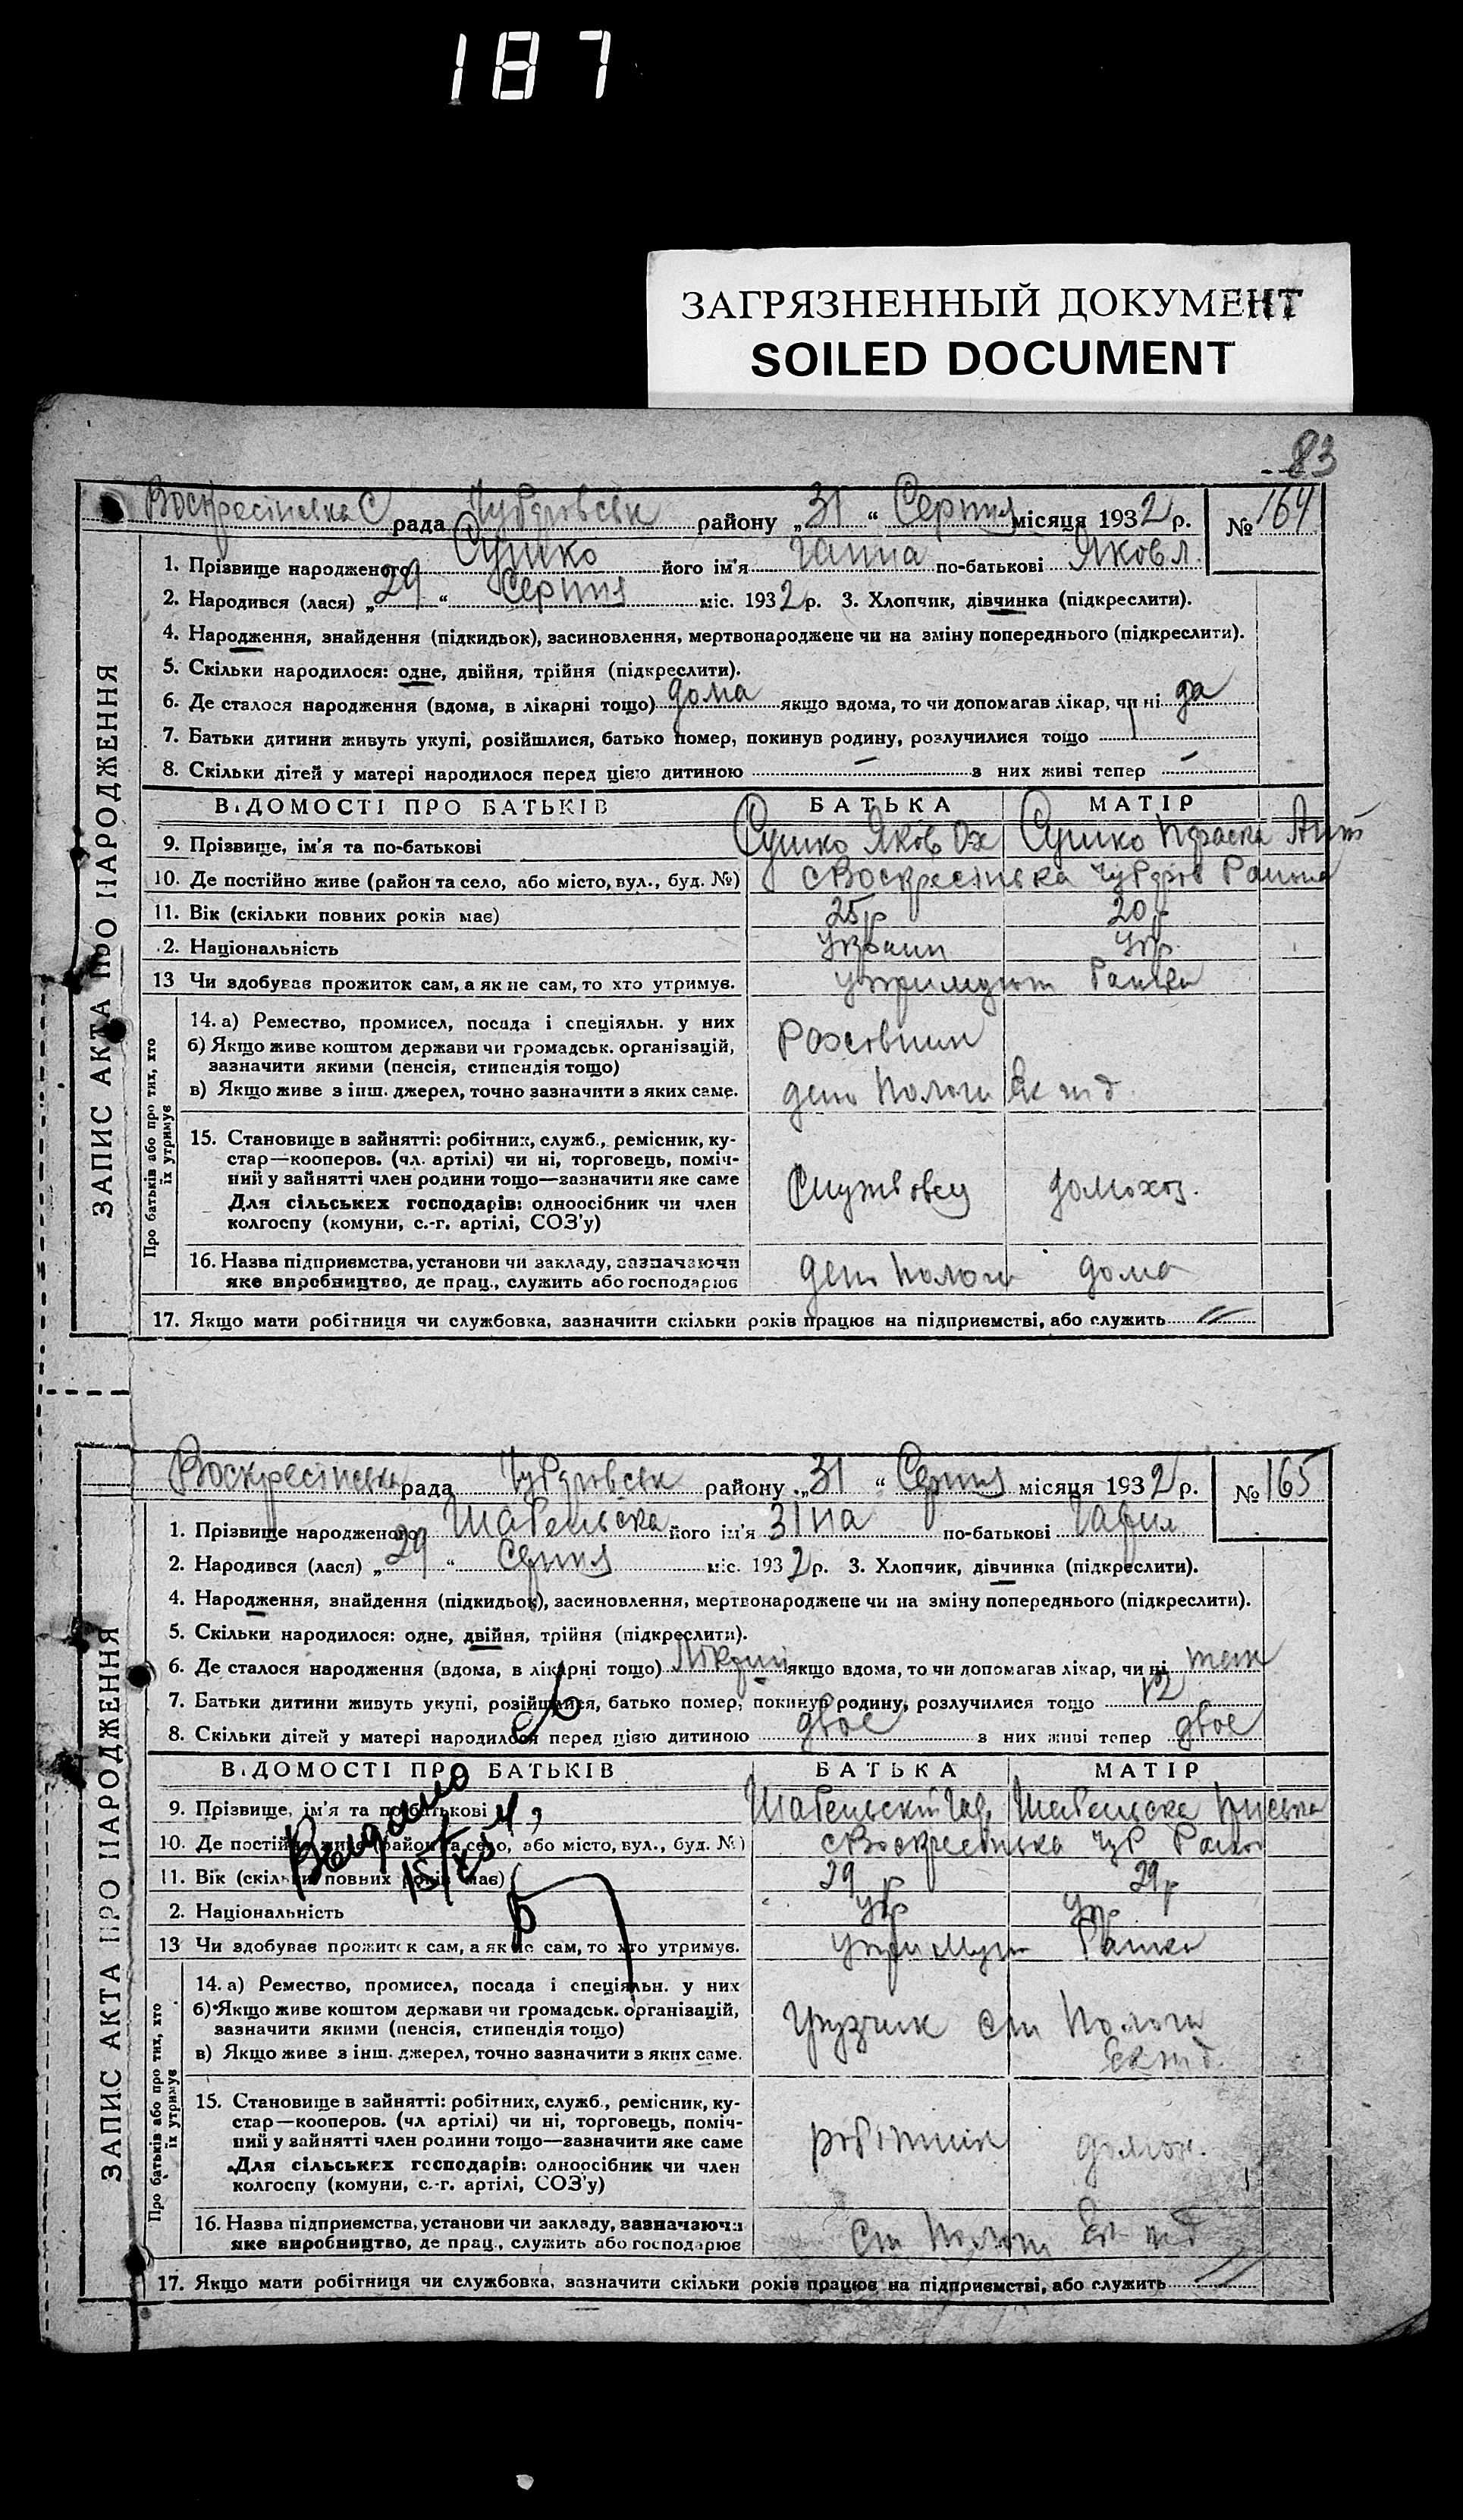 187
ЗАГРЯЗНЕННЫЙ ДОКУМЕНТ
SOILED DOCUMENT
83
рада району „31“ Серпня місяця 1932 р. № 164
1. Прізвище народженого Сушко його ім'я Ганна по-батькові Яковл.
2. Народився (лася) „29“ Серпня міс. 1932 р. 3. Хлопчик, дівчинка (підкреслити).
4. Народження, знайдення (підкидьок), засиновлення, мертвонароджене чи на зміну попереднього (підкреслити).
5. Скільки народилося: одне, двійня, трійня (підкреслити).
6. Де сталося народження (вдома, в лікарні тощо) дома якщо вдома, то чи допомагав лікар, чи ні да
7. Батьки дитини живуть укупі, розійшлися, батько помер, покинув родину, розлучилися тощо
8. Скільки дітей у матері народилося перед цією дитиною — з них живі тепер —
ВІДОМОСТІ ПРО БАТЬКІВ БАТЬКА МАТІР
9. Прізвище, ім'я та по-батькові Сушко Яков Сушко
10. Де постійно живе (район та село, або місто, вул., буд. №)
11. Вік (скільки повних років має) 25 р 20 р
2. Національність Укр.
13 Чи здобував прожиток сам, а як не сам, то хто утримує.
Про батьків або про тих, хто їх утримує
14. а) Ремество, промисел, посада і спеціяльн. у них
б) Якщо живе коштом держави чи громадськ. організацій,
зазначити якими (пенсія, стипендія тощо)
в) Якщо живе з інш. джерел, точно зазначити з яких саме. депо Пологи
15. Становище в зайнятті: робітник, служб., ремісник, ку-
стар—кооперов. (чл. артілі) чи ні, торговець, поміч-
ний у зайнятті член родини тощо—зазначити яке саме домохоз.
Для сільських господарів: одноосібник чи член
колгоспу (комуни, с.-г. артілі, СОЗ'у)
16. Назва підприємства, установи чи закладу, зазначаючи
яке виробництво, де прац., служить або господарює депо Пологи дома
17. Якщо мати робітниця чи службовка, зазначити скільки років працює на підприємстві, або служить
ЗАПИС АКТА ПРО НАРОДЖЕННЯ
рада району „31“ Серпня місяця 1932 р. № 165
1. Прізвище народженого Шабельска його ім'я Зіна по-батькові Гаврил
2. Народився (лася) „29“ Серпня міс. 1932 р. 3. Хлопчик, дівчинка (підкреслити).
4. Народження, знайдення (підкидьок), засиновлення, мертвонароджене чи на зміну попереднього (підкреслити).
5. Скільки народилося: одне, двійня, трійня (підкреслити).
6. Де сталося народження (вдома, в лікарні тощо) якщо вдома, то чи допомагав лікар, чи ні
7. Батьки дитини живуть укупі, розійшлися, батько помер, покинув родину, розлучилися тощо
8. Скільки дітей у матері народилося перед цією дитиною двое з них живі тепер двое
ВІДОМОСТІ ПРО БАТЬКІВ БАТЬКА МАТІР
9. Прізвище, ім'я та по-батькові Шабельскій Гав. Шабельска
10. Де постійно живе (район та село, або місто, вул., буд. №)
11. Вік (скільки повних років має) 29 р 29 р
2. Національність Укр Укр
13 Чи здобував прожиток сам, а як не сам, то хто утримує.
Видано
Про батьків або про тих, хто їх утримує
14. а) Ремество, промисел, посада і спеціяльн. у них
б) Якщо живе коштом держави чи громадськ. організацій,
зазначити якими (пенсія, стипендія тощо) Грузчик ст Пологи
в) Якщо живе з інш. джерел, точно зазначити з яких саме.
15. Становище в зайнятті: робітник, служб., ремісник, ку-
стар—кооперов. (чл артілі) чи ні, торговець, поміч-
ний у зайнятті член родини тощо—зазначити яке саме робітник
Для сільських господарів: одноосібник чи член
колгоспу (комуни, с.-г. артілі, СОЗ'у)
16. Назва підприємства, установи чи закладу, зазначаючи
яке виробництво, де прац., служить або господарює ст Пологи
17. Якщо мати робітниця чи службовка, зазначити скільки років працює на підприємстві, або служить
ЗАПИС АКТА ПРО НАРОДЖЕННЯ